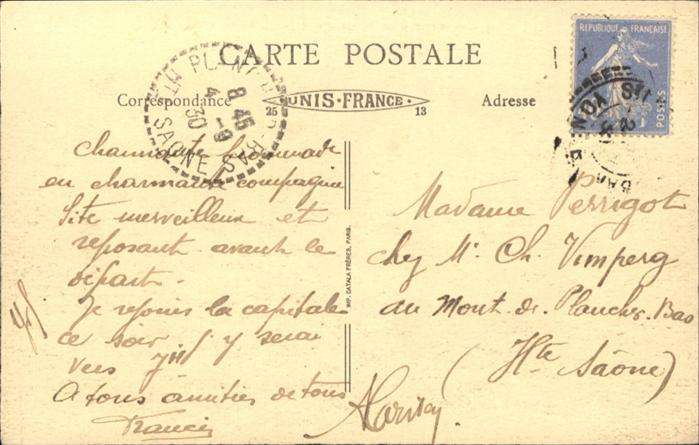 CARTE POSTALE
Correspondance
25 UNIS-FRANCE 13
Adresse
REPUBLIQUE FRANÇAISE
POSTES
PLANCHER-BAS
8 45
4 -9
30
Hte SAONE
Charmante promenade
en charmante compagnie
Site merveilleux et
reposant avant le
départ.
Je rejoins la capitale
ce soir j'y serai
vers 7h
A tous amitiés de tous
Francis
IMP. CATALA FRÈRES, PARIS
Madame Perrigot
chez Mr Ch. Vimperg
au Mont de Plancher-Bas
(Hte Saône)